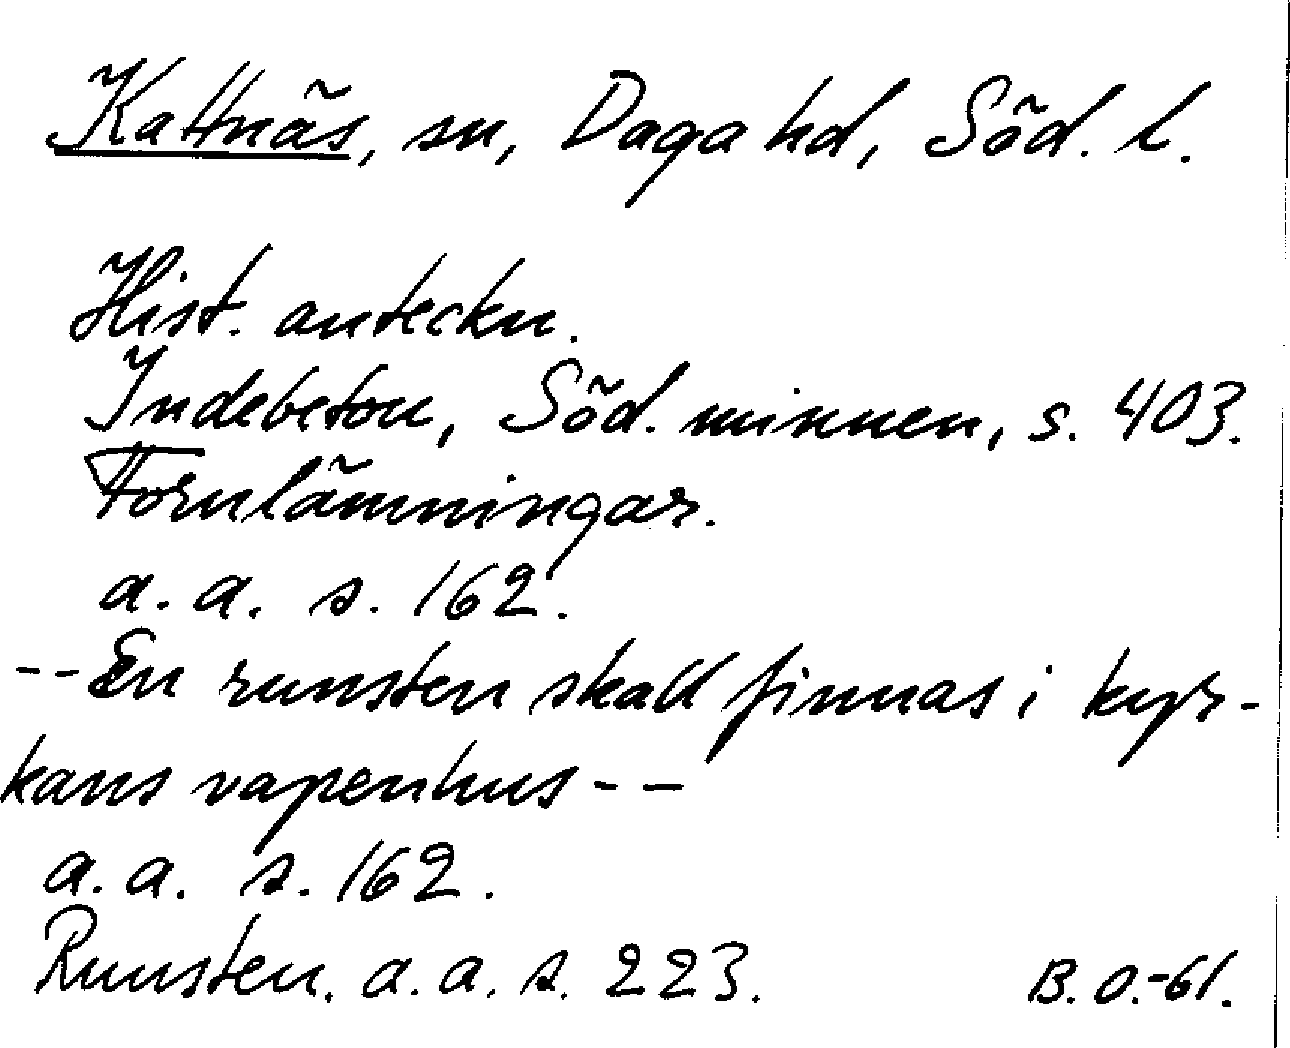 Kattnäs, sn, Daga hd, Söd. l.
Hist. anteckn.
Indebetou, Söd. minnen, s. 403.
Fornlämningar.
a. a. s. 162.
-- En runsten skall finnas i kyr-
kans vapenhus --
a. a. s. 162.
Runsten. a. a. s. 223. B. O.-61.